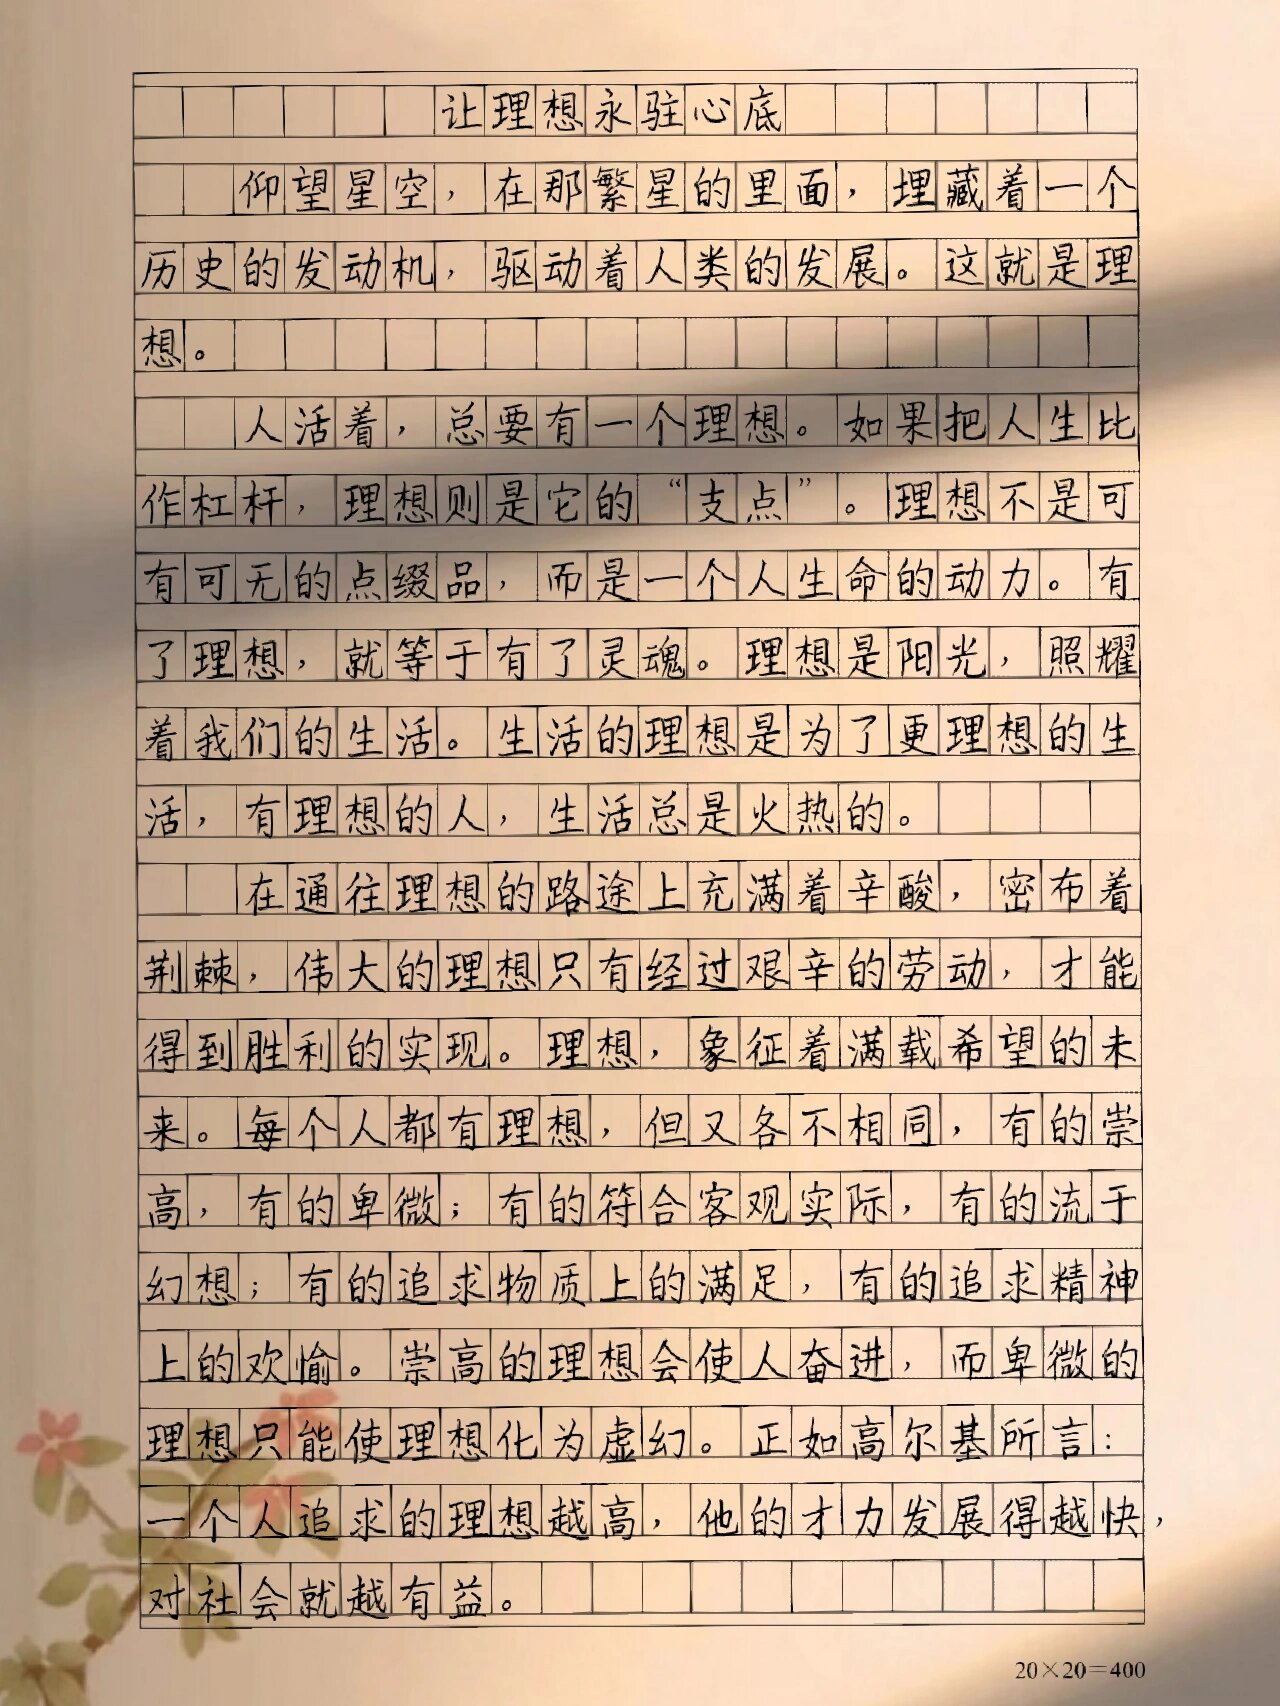 让理想永驻心底
仰望星空，在那繁星的里面，埋藏着一个
历史的发动机，驱动着人类的发展。这就是理
想。
人活着，总要有一个理想。如果把人生比
作杠杆，理想则是它的“支点”。理想不是可
有可无的点缀品，而是一个人生命的动力。有
了理想，就等于有了灵魂。理想是阳光，照耀
着我们的生活。生活的理想是为了更理想的生
活，有理想的人，生活总是火热的。
在通往理想的路途上充满着辛酸，密布着
荆棘，伟大的理想只有经过艰辛的劳动，才能
得到胜利的实现。理想，象征着满载希望的未
来。每个人都有理想，但又各不相同，有的崇
高，有的卑微；有的符合客观实际，有的流于
幻想；有的追求物质上的满足，有的追求精神
上的欢愉。崇高的理想会使人奋进，而卑微的
理想只能使理想化为虚幻。正如高尔基所言：
一个人追求的理想越高，他的才力发展得越快，
对社会就越有益。
20×20=400